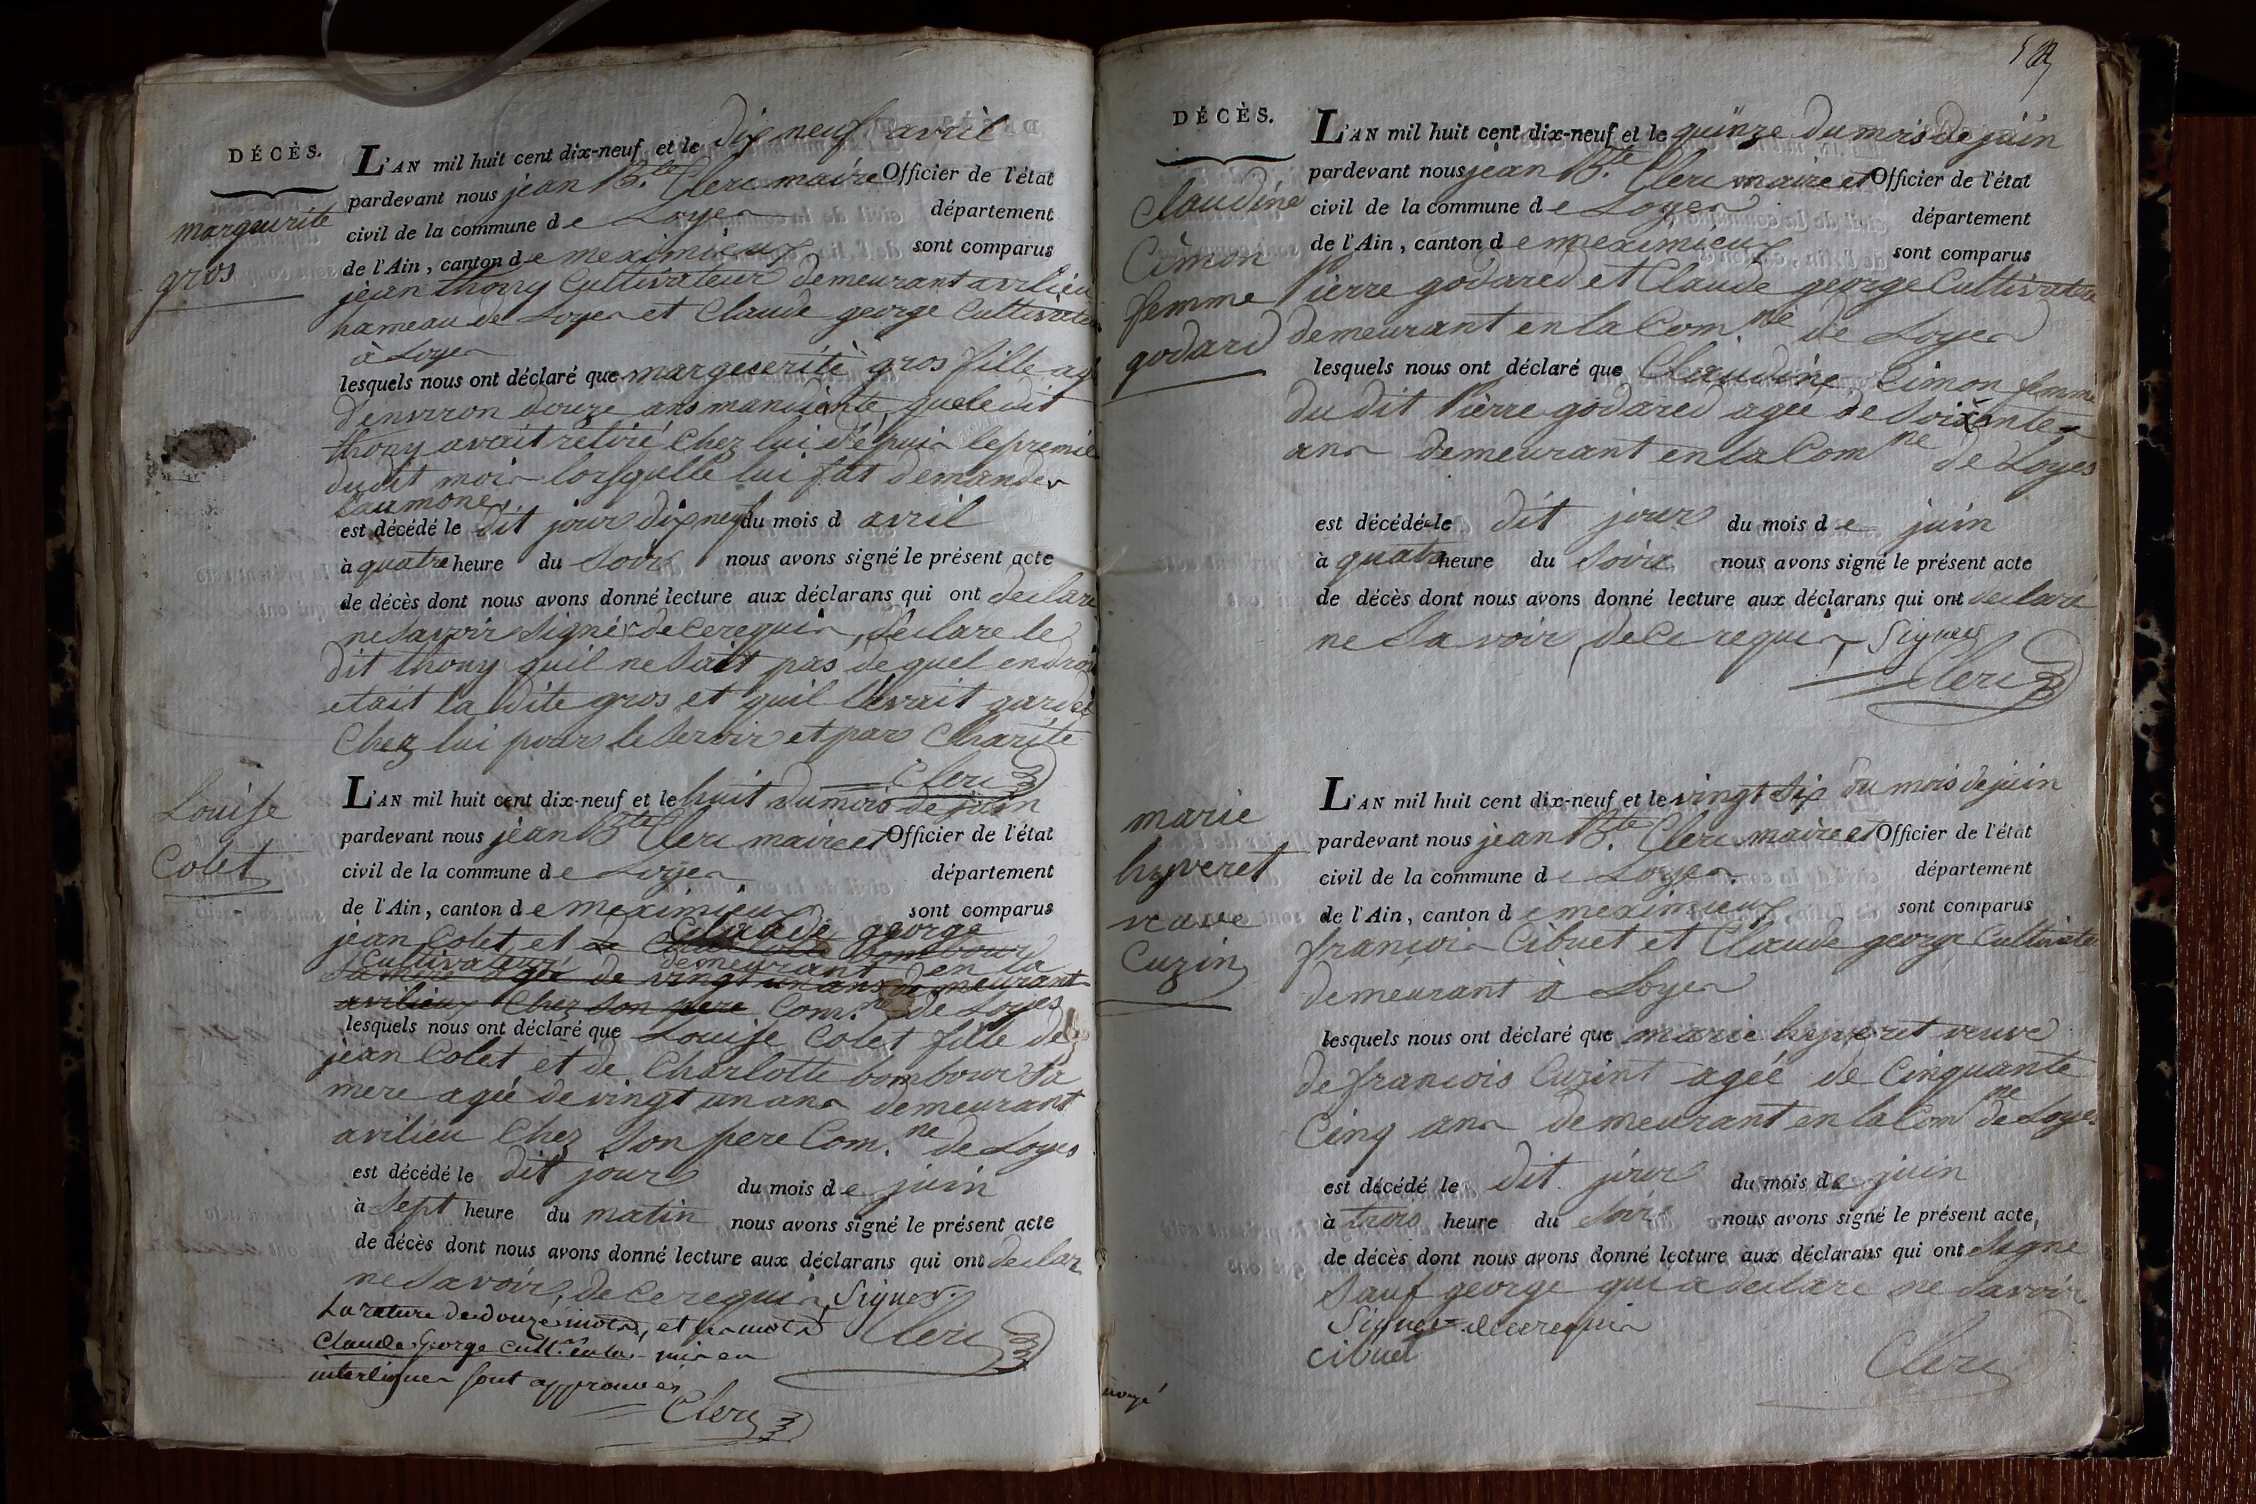 DÉCÈS.
marguerite
gros
L'AN mil huit cent dix-neuf et le dix neuf avril
pardevant nous jean B.te Clerc maire Officier de l'état
civil de la commune de Loyes département
de l'Ain, canton de meximieux sont comparus
jean thony Cultivateur demeurant a vilieu
hameau de Loyes et Claude george Cultivateur
à Loyes
lesquels nous ont déclaré que margueritè gros fille agé
d'environ douze ans mandiente, que le dit
thony avait retiré chez lui dépuis le premier
dudit mois lorsquelle lui fut demander
l'aumone,
est décédé le dit jour dix neuf du mois d avril
à quatre heure du Soir nous avons signé le présent acte
de décès dont nous avons donné lecture aux déclarans qui ont declaré
ne Savoir Signér de ce requis, declare le
dit thony quil ne Sait pas de quel endroit
etait la dite gros et quil l'avait gardé
Chez lui pour le Servir et par Charité
Clerc
Louise
Colet
L'AN mil huit cent dix-neuf et le huit du mois de juin
pardevant nous jean B.te Clerc maire et Officier de l'état
civil de la commune de Loyes département
de l'Ain, canton de meximieux sont comparus
Claude george
jean Colet et de bombour
Cultivateurs demeurant en la
Sa mere agée de vingt un ans demeurant
a vilieu Chez Son pere Com.ne de Loyes
lesquels nous ont déclaré que Louise Colet fille de
jean Colet et de Charlotte bombour Sa
mere agée de vingt un ans demeurant
a vilieu Chez Son pere Com.ne de Loyes
est décédé le dit jour du mois de juin
à Sept heure du matin nous avons signé le présent acte
de décès dont nous avons donné lecture aux déclarans qui ont declaré
ne Savoir, de ce requis, Signer.
La rature de douze mots, et les mots
Clerc
Claude George cult. en la mis en
interlignes sont approuves
Clerc
DÉCÈS.
Claudine
Cimon
femme
godard
L'AN mil huit cent dix-neuf et le quinze du mois de juin
pardevant nous jean B.te Clerc maire et Officier de l'état
civil de la commune de Loyes département
de l'Ain, canton de meximieux sont comparus
Pierre godared et Claude george Cultivateur
demeurant en la Com.ne de Loyes
lesquels nous ont déclaré que Claudine Cimon femme
du dit Pierre godared agée de Soixente
ans demeurant en la Com ne de Loyes
est décédé le dit jour du mois de juin
à quatre heure du Soire nous avons signé le présent acte
de décès dont nous avons donné lecture aux déclarans qui ont declaré
ne Savoir, de ce requis, Signer
Clerc
marie
hyveret
veuve
Cuzin
L'AN mil huit cent dix-neuf et le vingt Six du mois de juin
pardevant nous jean B.te Clerc maire et Officier de l'état
civil de la commune de Loyes département
de l'Ain, canton de meximieux sont comparus
françois Cibuet et Claude george Cultivateur
demeurant à Loyes
lesquels nous ont déclaré que marie hyveret veuve
de francois Cuzint agéé de Cinquante
Cinq ans demeurant en la Com ne de Loyes
est décédé le dit jour du mois de juin
à trois heure du Soire nous avons signé le présent acte,
de décès dont nous avons donné lecture aux déclarans qui ont Signé
Sauf george qui a declaré ne Savoir
Signer de ce requis
cibuet
Clerc